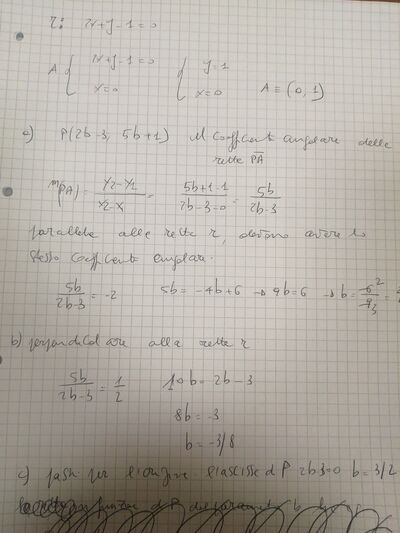 r: 2x+y-1=0
A { 2x+y-1=0 { y=1
x=0 x=0 A ≡ (0,1)
a) P(2b-3, 5b+1) il coefficiente angolare della
retta PA
m(PA) = y2-y1 / x2-x = 5b+1-1 / 2b-3-0 = 5b / 2b-3
parallela alla retta r, devono avere lo
stesso coefficiente angolare.
5b / 2b-3 = -2 5b = -4b+6 → 9b=6 → b = 6 2 / 9 3 =
b) perpendicolare alla retta r
5b / 2b-3 = 1/2 10b = 2b-3
8b = -3
b = -3/8
c) passi per l'origine l'ascissa di P 2b-3=0 b = 3/2